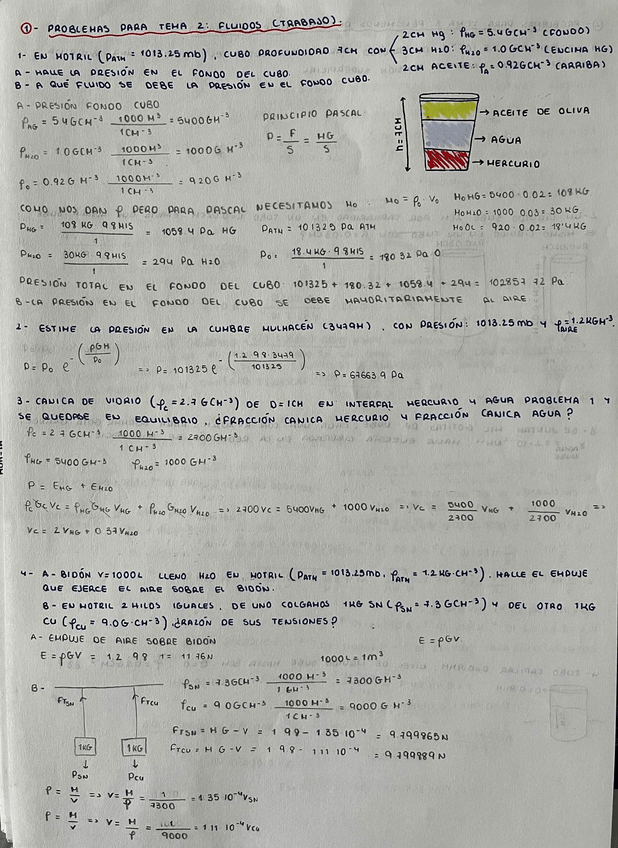 ① - PROBLEMAS PARA TEMA 2: FLUIDOS (TRABAJO).
1- EN MOTRIL (PATM = 1013.25 mb), CUBO PROFUNDIDAD 7CM CON
2CM Hg: ρHG = 5.4 GCM⁻³ (FONDO)
3CM H2O: ρH2O = 1.0 GCM⁻³ (ENCIMA HG)
2CM ACEITE: ρA = 0.92 GCM⁻³ (ARRIBA)
A - HALLE LA PRESIÓN EN EL FONDO DEL CUBO.
B - A QUÉ FLUIDO SE DEBE LA PRESIÓN EN EL FONDO DEL CUBO.
A - PRESIÓN FONDO CUBO
ρHG = 5.4 GCM⁻³ 1000 M³ / 1CM⁻³ = 5400 GM⁻³
ρH2O = 1.0 GCM⁻³ 1000M³ / 1CM⁻³ = 1000 G M⁻³
ρO = 0.92 G M⁻³ 1000M⁻³ / 1CM⁻³ = 920 G M⁻³
PRINCIPIO PASCAL
P = F / S = MG / S
h = 7CM
ACEITE DE OLIVA
AGUA
MERCURIO
COMO NOS DAN ρ, PERO PARA PASCAL NECESITAMOS Mo: Mo = ρo · Vo
MoHG = 5400 · 0.02 = 108 KG
MoH2O = 1000 · 0.03 = 30 KG
MoOL = 920 · 0.02 = 18.4 KG
PHG = 108 KG · 9.8 M/S / 1 = 1058.4 Pa HG
PATM = 101325 Pa ATM
PH2O = 30KG · 9.8 M/S / 1 = 294 Pa H2O
PO = 18.4 KG · 9.8 M/S / 1 = 180.32 Pa O
PRESIÓN TOTAL EN EL FONDO DEL CUBO: 101325 + 180.32 + 1058.4 + 294 = 102857.72 Pa
B - LA PRESIÓN EN EL FONDO DEL CUBO SE DEBE MAYORITARIAMENTE AL AIRE
2- ESTIME LA PRESIÓN EN LA CUMBRE MULHACÉN (3479M), CON PRESIÓN: 1013.25 mb Y ρAIRE = 1.2 KGM⁻³.
P = P0 e^-(ρGH / P0) => P = 101325 e^-(1.2 · 9.8 · 3479 / 101325) => P = 67663.9 Pa
3- CANICA DE VIDRIO (ρC = 2.7 GCM⁻³) DE D=1CM EN INTERFAL MERCURIO Y AGUA PROBLEMA 1 Y
SE QUEDASE EN EQUILIBRIO. ¿FRACCIÓN CANICA MERCURIO Y FRACCIÓN CANICA AGUA?
ρC = 2.7 GCM⁻³ 1000 M⁻³ / 1 CM⁻³ = 2700 GM⁻³
ρHG = 5400 GM⁻³ ρH2O = 1000 GM⁻³
P = EHG + EH2O
ρC GC VC = ρHG GHG VHG + ρH2O GH2O VH2O => 2700 VC = 5400VHG + 1000 VH2O => VC = 5400 / 2700 VHG + 1000 / 2700 VH2O =>
VC = 2 VHG + 0.37 VH2O
4- A- BIDÓN V=1000L LLENO H2O EN MOTRIL (PATM = 1013.25mb, ρATM = 1.2 KG·CM⁻³). HALLE EL EMPUJE
QUE EJERCE EL AIRE SOBRE EL BIDÓN.
B- EN MOTRIL 2 HILOS IGUALES, DE UNO COLGAMOS 1KG SN (ρSN = 7.3 GCM⁻³) Y DEL OTRO 1KG
CU (ρCU = 9.0 G·CM⁻³). ¿RAZÓN DE SUS TENSIONES?
A - EMPUJE DE AIRE SOBRE BIDÓN
E = ρGV
E = ρGV = 1.2 · 9.8 · 1 = 11.76 N
1000L = 1m³
B -
FTSN
FTCU
1KG
1KG
PSN
PCU
ρSN = 7.3 GCM⁻³ 1000 M⁻³ / 1 CM⁻³ = 7300 GM⁻³
ρCU = 9.0 GCM⁻³ 1000 M⁻³ / 1CM⁻³ = 9000 G M⁻³
FTSN = M G - V = 1 · 9.8 - 1.35 · 10⁻⁴ = 9.799865 N
FTCU = M G - V = 1 · 9.8 - 1.11 · 10⁻⁴ = 9.799889 N
ρ = M / V => V = M / ρ = 1 / 7300 = 1.35 · 10⁻⁴ VSN
ρ = M / V => V = M / ρ = 1 / 9000 = 1.11 · 10⁻⁴ VCU